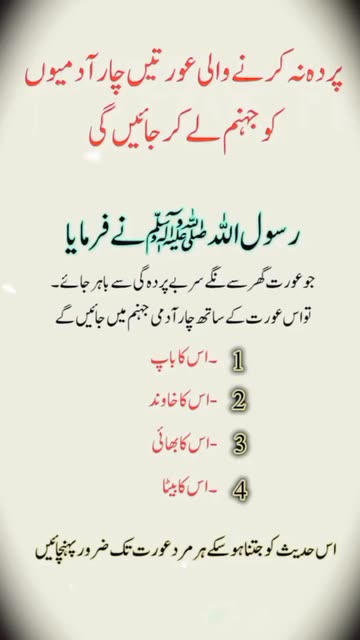 پردہ نہ کرنے والی عورتیں چار آدمیوں
کو جہنم لے کر جائیں گی
رسول اللہ ﷺ نے فرمایا
جو عورت گھر سے ننگے سر بے پردہ گی سے باہر جائے۔
تو اس عورت کے ساتھ چار آدمی جہنم میں جائیں گے
1 ۔اس کا باپ
2 -اس کا خاوند
3 -اس کا بھائی
4 ۔اس کا بیٹا
اس حدیث کو جتنا ہو سکے ہر مرد عورت تک ضرور پہنچائیں